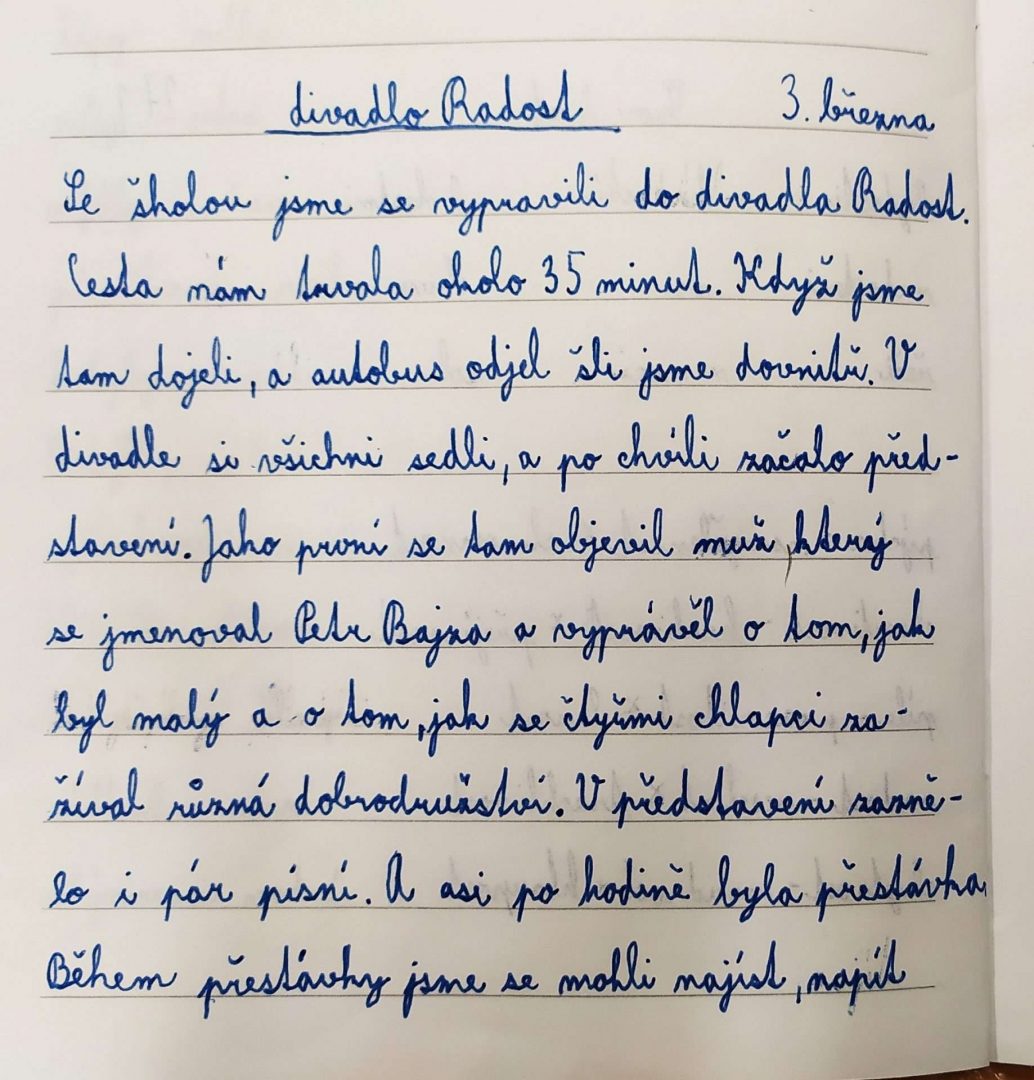 divadlo Radost 3. března
Se školou jsme se vypravili do divadla Radost.
Cesta nám trvala okolo 35 minut. Když jsme
tam dojeli, a autobus odjel šli jsme dovnitř. V
divadle si všichni sedli, a po chvíli začalo před-
stavení. Jako první se tam objevil muž, který
se jmenoval Petr Bajza a vyprávěl o tom, jak
byl malý a o tom, jak se čtyřmi chlapci za-
žíval různá dobrodružství. V představení zazně-
lo i pár písní. A asi po hodině byla přestávka.
Během přestávky jsme se mohli najíst, napít